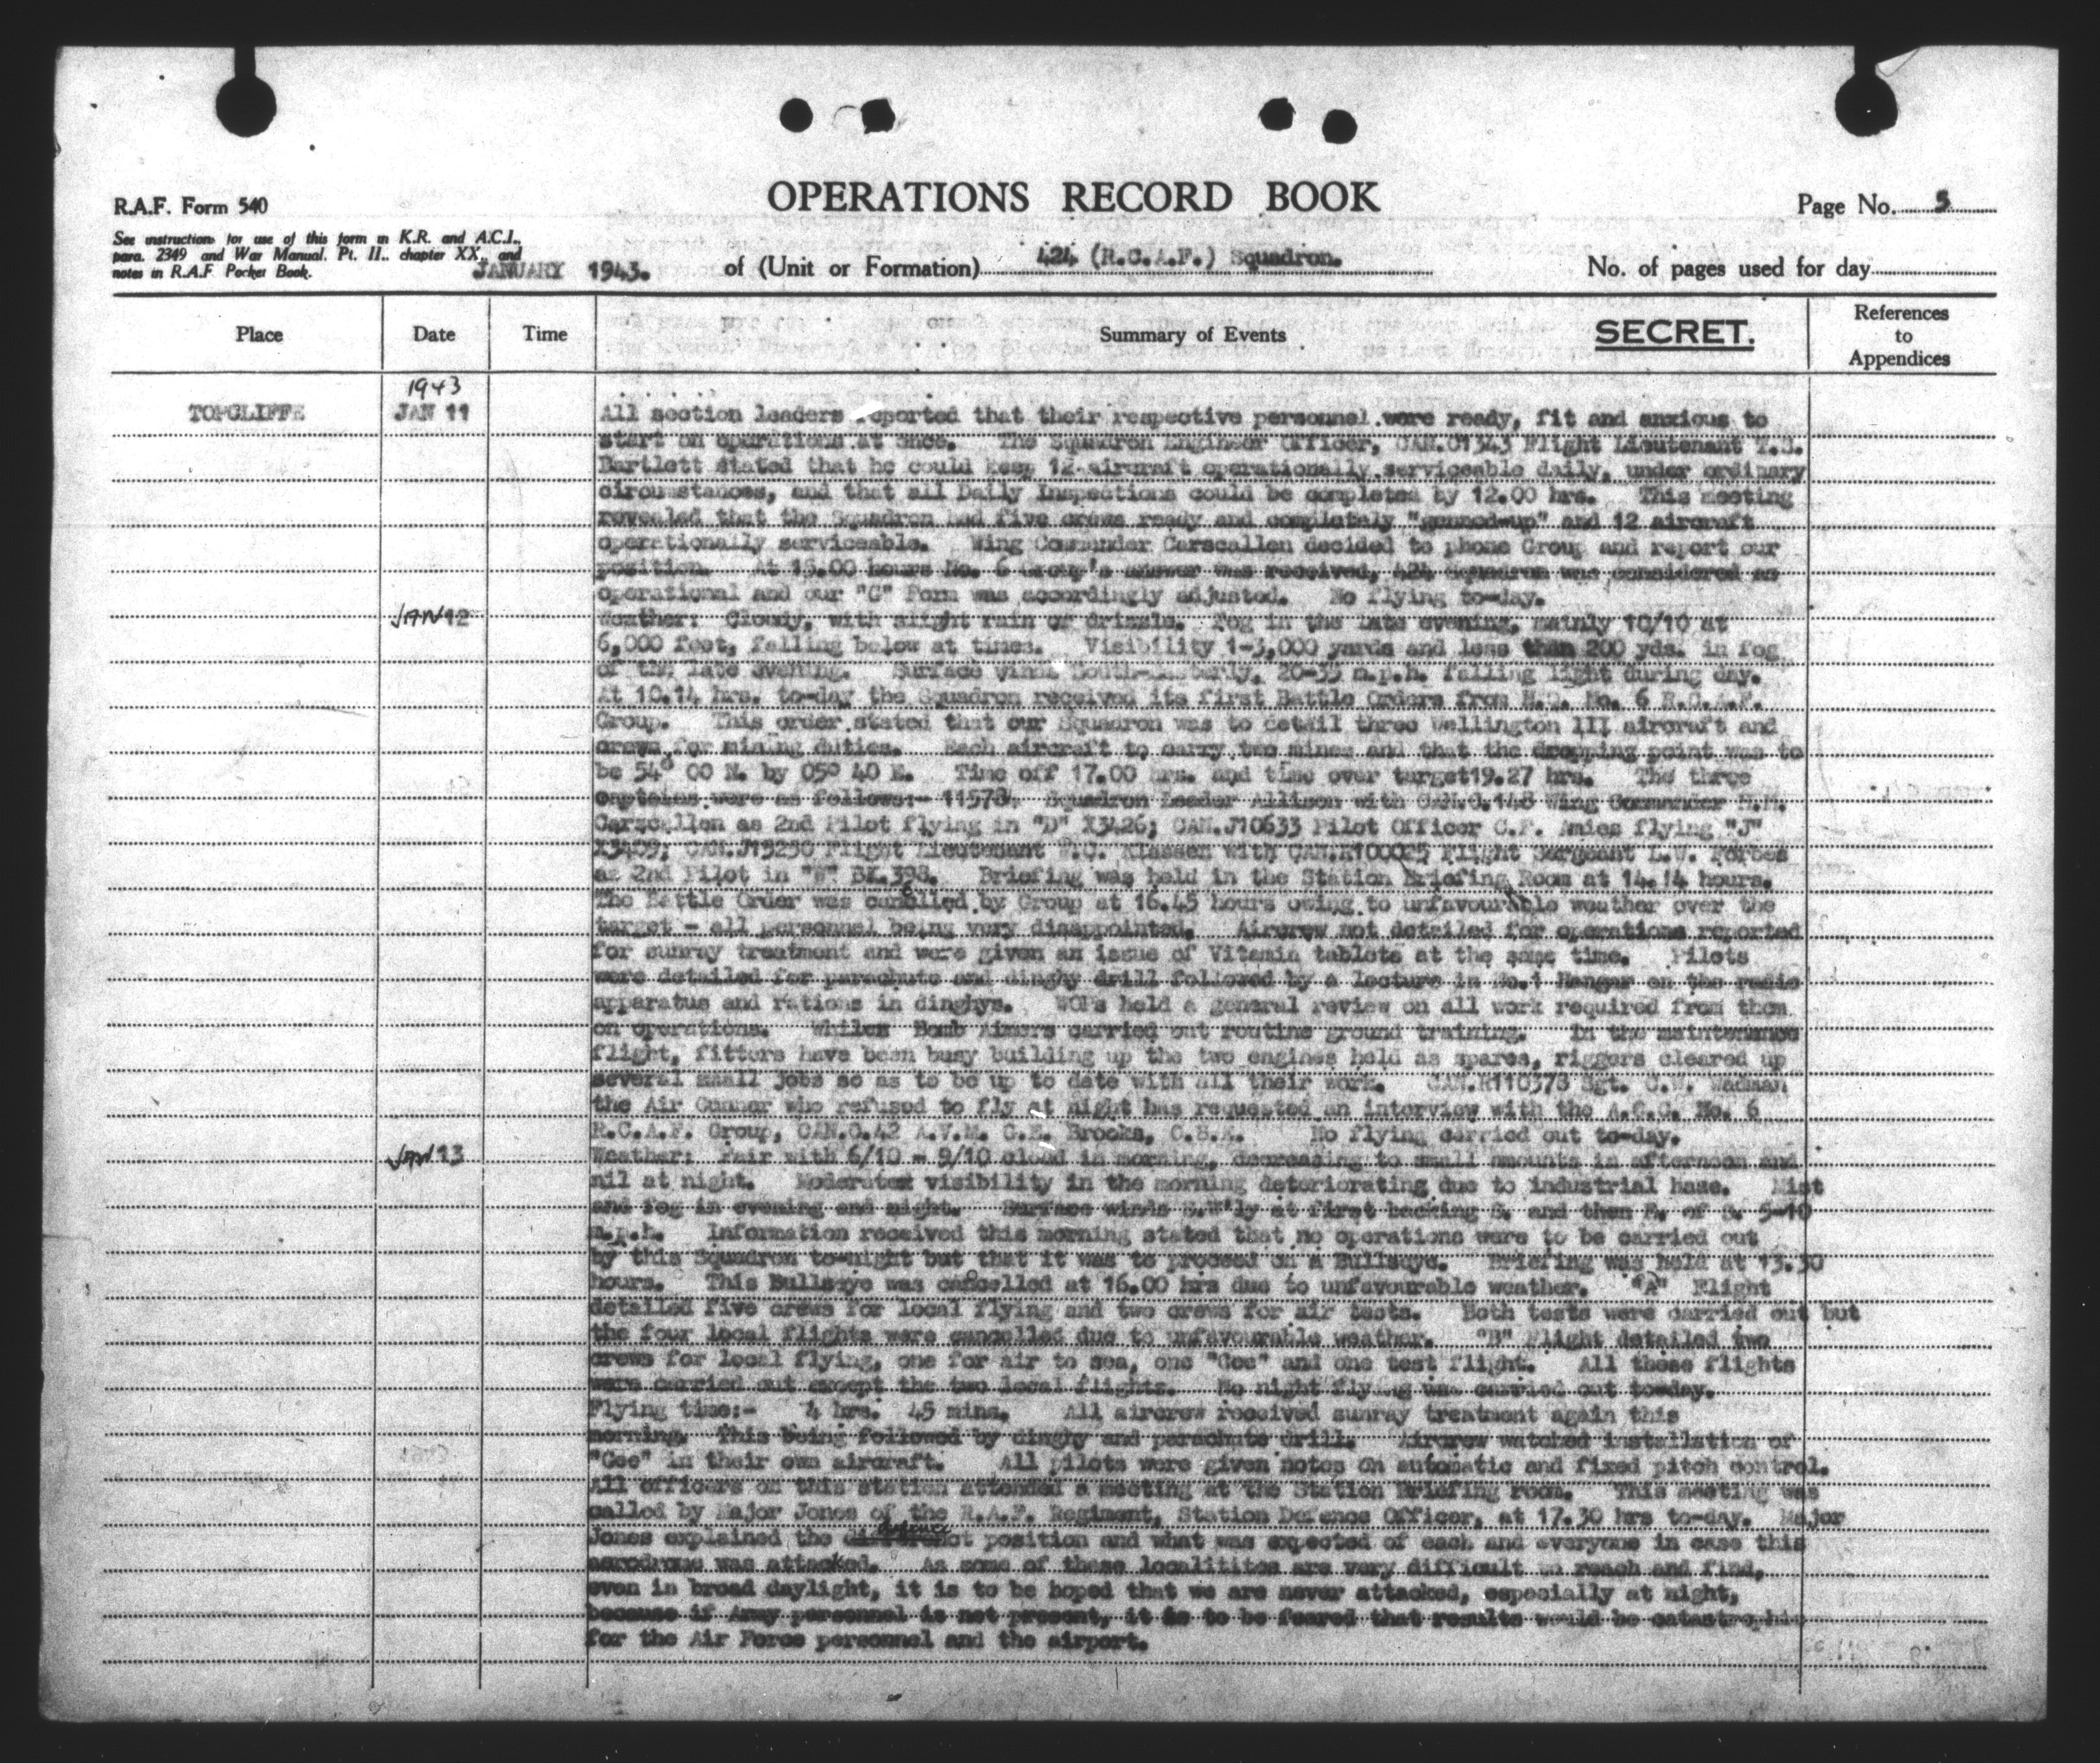 OPERATIONS RECORD BOOK
R.A.F. Form 540
Page No. 5
See instructions for use of this form in K.R. and A.C.I.,
para. 2349 and War Manual. Pt. II., chapter XX., and
notes in R.A.F. Pocket Book.
JANUARY 1943. of (Unit or Formation) 424 (R.C.A.F.) Squadron.
No. of pages used for day
Place Date Time Summary of Events SECRET. References to Appendices
1943
TOPCLIFFE JAN 11 All section leaders reported that their respective personnel were ready, fit and anxious to
start on operations at once. The Squadron Engineer Officer, CAN.C1343 Flight Lieutenant
Bartlett stated that he could keep 12 aircraft operationally serviceable daily, under ordinary
circumstances, and that all Daily Inspections could be completed by 12.00 hrs. This meeting
revealed that the Squadron had five crews ready and completely "genned-up" and 12 aircraft
operationally serviceable. Wing Commander Carscallen decided to phone Group and report our
position. At 15.00 hours No. 6 Group's answer was received, 424 Squadron was considered as
operational and our "C" Form was accordingly adjusted. No flying to-day.
JAN 12 Weather: Cloudy, with slight rain or drizzle. Fog in the late evening, mainly 10/10 at
6,000 feet, falling below at times. Visibility 1-3,000 yards and less than 200 yds. in fog
of the late evening. Surface wind South-Easterly, 20-35 m.p.h. falling light during day.
At 10.14 hrs. to-day the Squadron received its first Battle Orders from H.Q. No. 6 R.C.A.F.
Group. This order stated that our Squadron was to detail three Wellington III aircraft and
crews for mining duties. Each aircraft to carry two mines and that the dropping point was to
be 54° 00 N. by 05° 40 E. Time off 17.00 hrs. and time over target19.27 hrs. The three
captains were as follows:- 11578 Squadron Leader Allison with CAN.C.148 Wing Commander H.M.
Carscallen as 2nd Pilot flying in "D" X3426; CAN.J10633 Pilot Officer C.F. Amies flying "J"
X3409; CAN.J15250 Flight Lieutenant P.G. Klassen with CAN.R100025 Flight Sergeant L.W. Forbes
as 2nd Pilot in BK.398. Briefing was held in the Station Briefing Room at 14.14 hours.
The Battle Order was cancelled by Group at 16.45 hours owing to unfavourable weather over the
target - all personnel being very disappointed. Aircrew not detailed for operations reported
for sunray treatment and were given an issue of Vitamin tablets at the same time. Pilots
were detailed for parachute and dinghy drill followed by a lecture in No.1 Hangar on the radio
apparatus and rations in dinghys. WOPs held a general review on all work required from them
on operations. Whilst Bomb Aimers carried out routine ground training. In the maintenance
flight, fitters have been busy building up the two engines held as spares, riggers cleared up
several small jobs so as to be up to date with all their work. CAN.R110378 Sgt. C.W. Wadman
the Air Gunner who refused to fly at night has requested an interview with the A.O.C. No. 6
R.C.A.F. Group, CAN.C.42 A.V.M. G.E. Brooks, O.B.E. No flying carried out to-day.
JAN 13 Weather: Fair with 6/10 - 9/10 cloud in morning, decreasing to small amounts in afternoon and
nil at night. Moderate visibility in the morning deteriorating due to industrial haze. Mist
and fog in evening and night. Surface winds S.W'ly at first backing S. and then E. of S. 5-10
m.p.h. Information received this morning stated that no operations were to be carried out
by this Squadron to-night but that it was to proceed on a Bullseye. Briefing was held at 13.30
hours. This Bullseye was cancelled at 16.00 hrs due to unfavourable weather. "A" Flight
detailed five crews for local flying and two crews for air tests. Both tests were carried out but
the four local flights were cancelled due to unfavourable weather. "B" Flight detailed two
crews for local flying, one for air to sea, one "Gee" and one test flight. All these flights
were carried out except the two local flights. No night flying was carried out to-day.
Flying time:- 4 hrs. 45 mins. All aircrew received sunray treatment again this
morning. This being followed by dinghy and parachute drill. Aircrew watched installation of
"Gee" in their own aircraft. All pilots were given notes on automatic and fixed pitch control.
All officers on this station attended a meeting at the Station Briefing room. This meeting was
called by Major Jones of the R.A.F. Regiment, Station Defence Officer, at 17.30 hrs to-day. Major
Jones explained the position and what was expected of each and everyone in case this
aerodrome was attacked. As some of these localitites are very difficult to reach and find,
even in broad daylight, it is to be hoped that we are never attacked, especially at night,
because if Army personnel is not present, it is to be feared that results would be catastrophic
for the Air Force personnel and the airport.